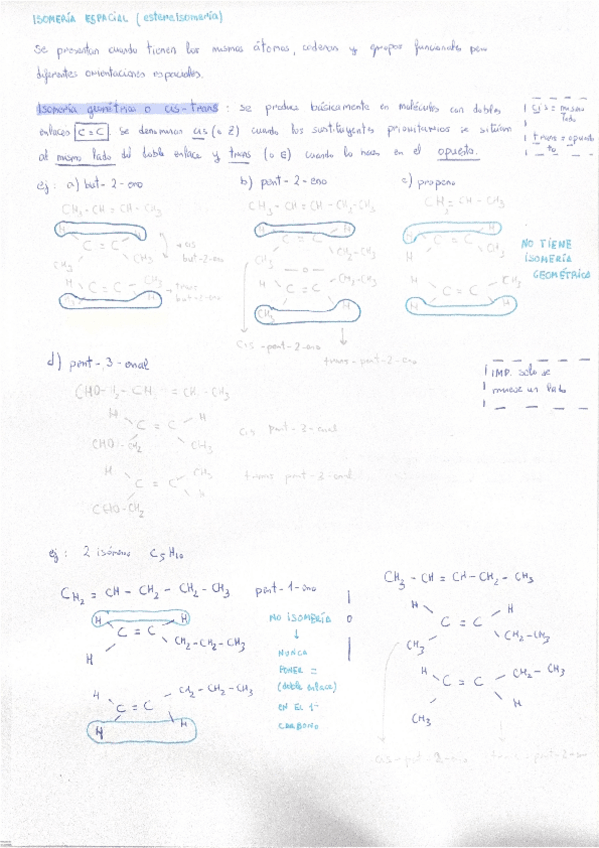 ISOMERÍA ESPACIAL (estereoisomería)
Se presentan cuando tienen los mismos átomos, cadenas y grupos funcionales pero
diferentes orientaciones espaciales.
Isomería geométrica o cis-trans: se produce básicamente en moléculas con dobles
enlaces C=C se denominan cis (o Z) cuando los sustituyentes prioritarios se sitúan
al mismo lado del doble enlace y trans (o E) cuando lo hacen en el opuesto.
cis = mismo
lado
trans = opuesto
ej: a) but-2-eno b) pent-2-eno c) propeno
CH3-CH=CH-CH3 CH3-CH=CH-CH2-CH3 CH2=CH-CH3
H H
C = C
CH3 CH3
cis
but-2-eno
CH3
H C = C
H
trans
but-2-eno
C = C
CH3 CH2-CH3
-o-
H C = C CH2-CH3
CH3 H
C = C
CH3
H C = C CH3
H H
NO TIENE
ISOMERÍA
GEOMÉTRICA
cis-pent-2-eno
trans-pent-2-eno
d) pent-3-enal
IMP. solo se
mueve un lado
H C = C H
CHO-CH2 CH3
cis pent-3-enal
H C = C CH3
CHO-CH2 H
trans pent-3-enal
ej: 2 isómeros C5H10
CH2 = CH - CH2 - CH2 - CH3 pent-1-eno
H H
C = C
H CH2-CH2-CH3
H C = C CH2-CH2-CH3
H H
NO ISOMERÍA
↓
NUNCA
PONER =
(doble enlace)
EN EL 1º
CARBONO
o
CH3 - CH = CH - CH2 - CH3
H H
C = C
CH3 CH2-CH3
H C = C CH2-CH3
CH3 H
cis-pent-2-eno trans-pent-2-eno